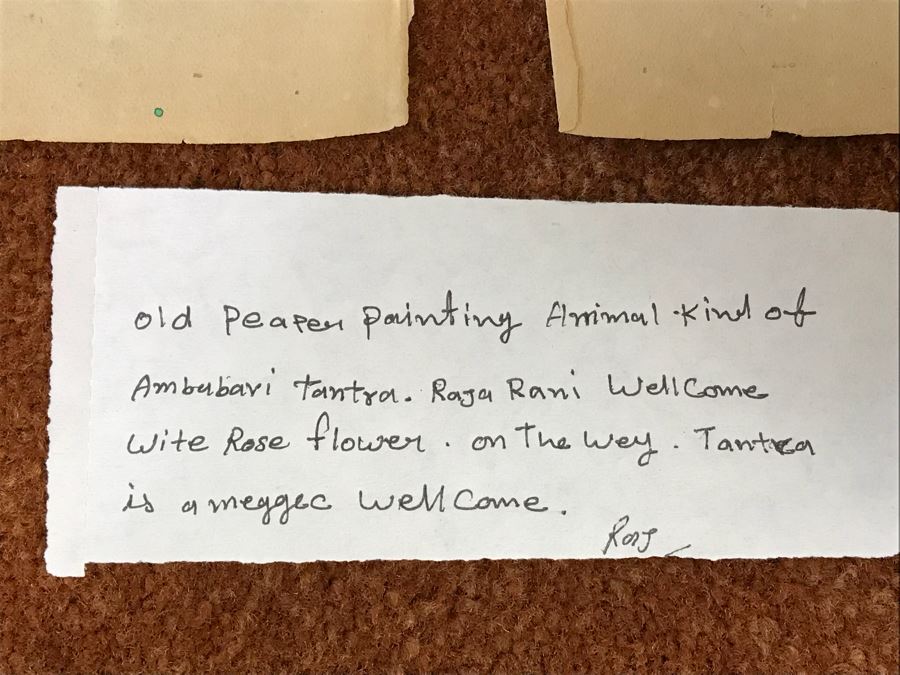 old Peaper painting Animal Kind of
Ambubari tantra. Raja Rani Wellcome
wite Rose flower. on The wey. Tantra
is a meggec wellcome.